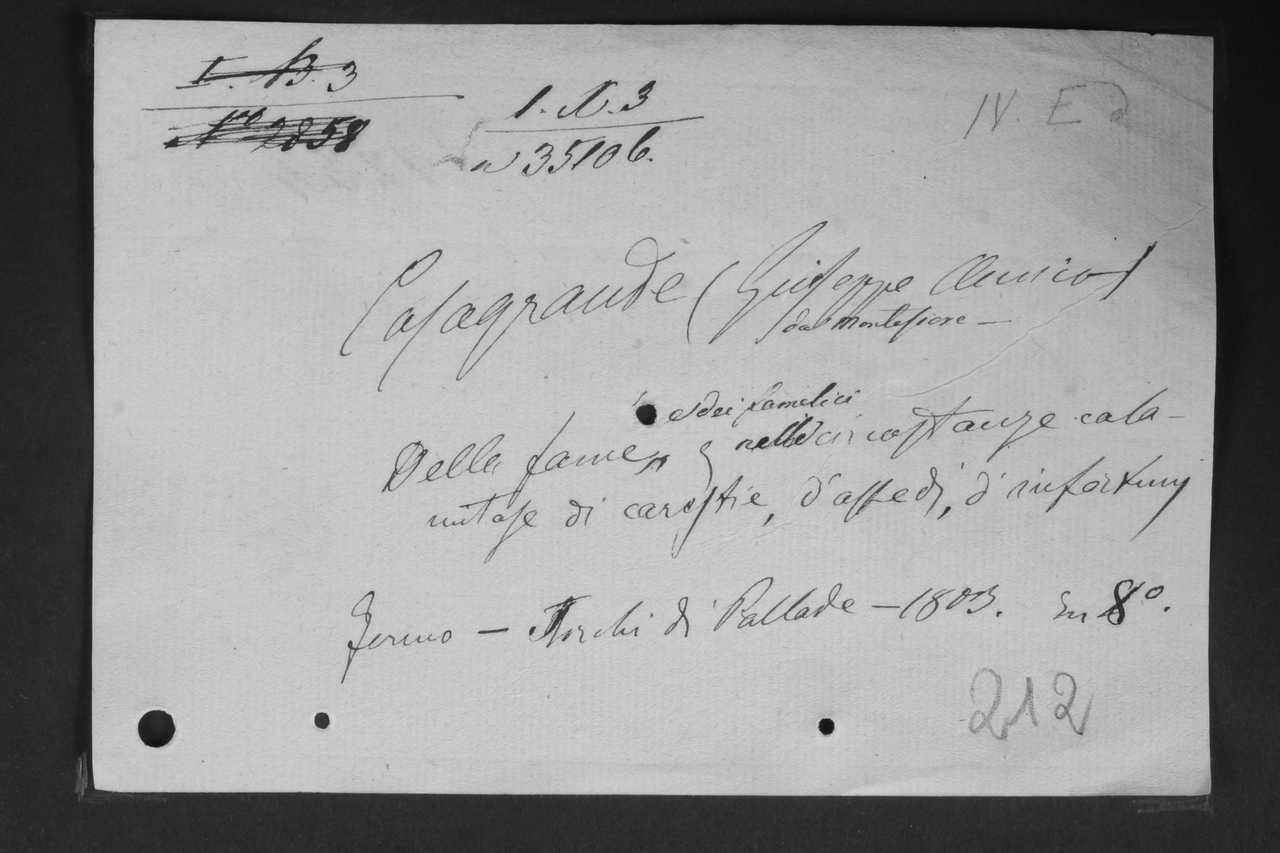 I. B. 3
No 2858
1. N. 3
N 35106.
IV. E
Casagrande (Giuseppe Amico)
da Montefiore —
e dei famelici
Della fame nelle circostanze cala-
mitose di carestie, d'assedi, d'infortunj
Fermo — Torchi di Pallade — 1803. In 8°.
212